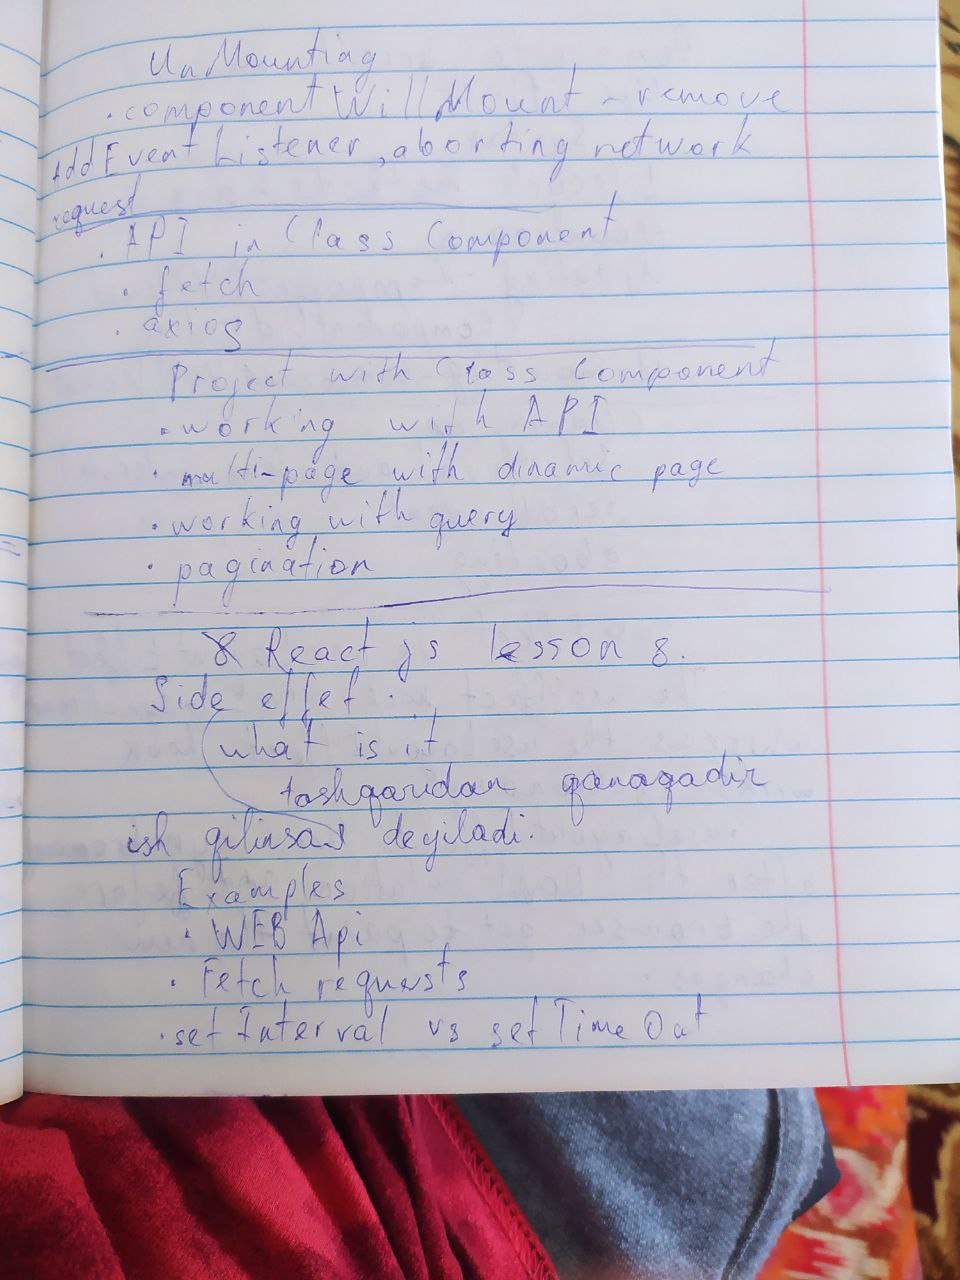 UnMounting
. componentWillMount - remove
Add Event Listener, aborting network
request
. API in Class Component
. fetch
. axios
Project with Class Component
. working with API
. multi-page with dinamic page
. working with query
. pagination
React js lesson 8.
Side effet.
what is it
tashqaridan qanaqadir
ish qilinsa deyiladi.
Examples
. WEB Api
. Fetch requests
. set Interval vs set TimeOut